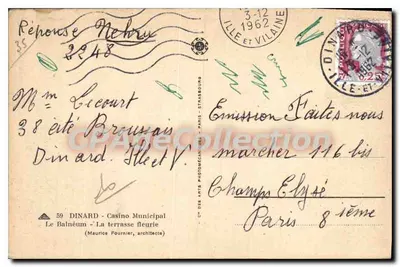 Réponse Nehru
2248
35
3-12
1962
ILLE et VILAINE
DINARD
3-12
ILLE-ET-V
Mme Lecourt
38 cité Broussais
Dinard. Ille et V.
Emission Faites nous
marcher 116 bis
Champs Elysé
Paris 8 ième
59 DINARD - Casino Municipal
Le Balnéum - La terrasse fleurie
(Maurice Fournier, architecte)